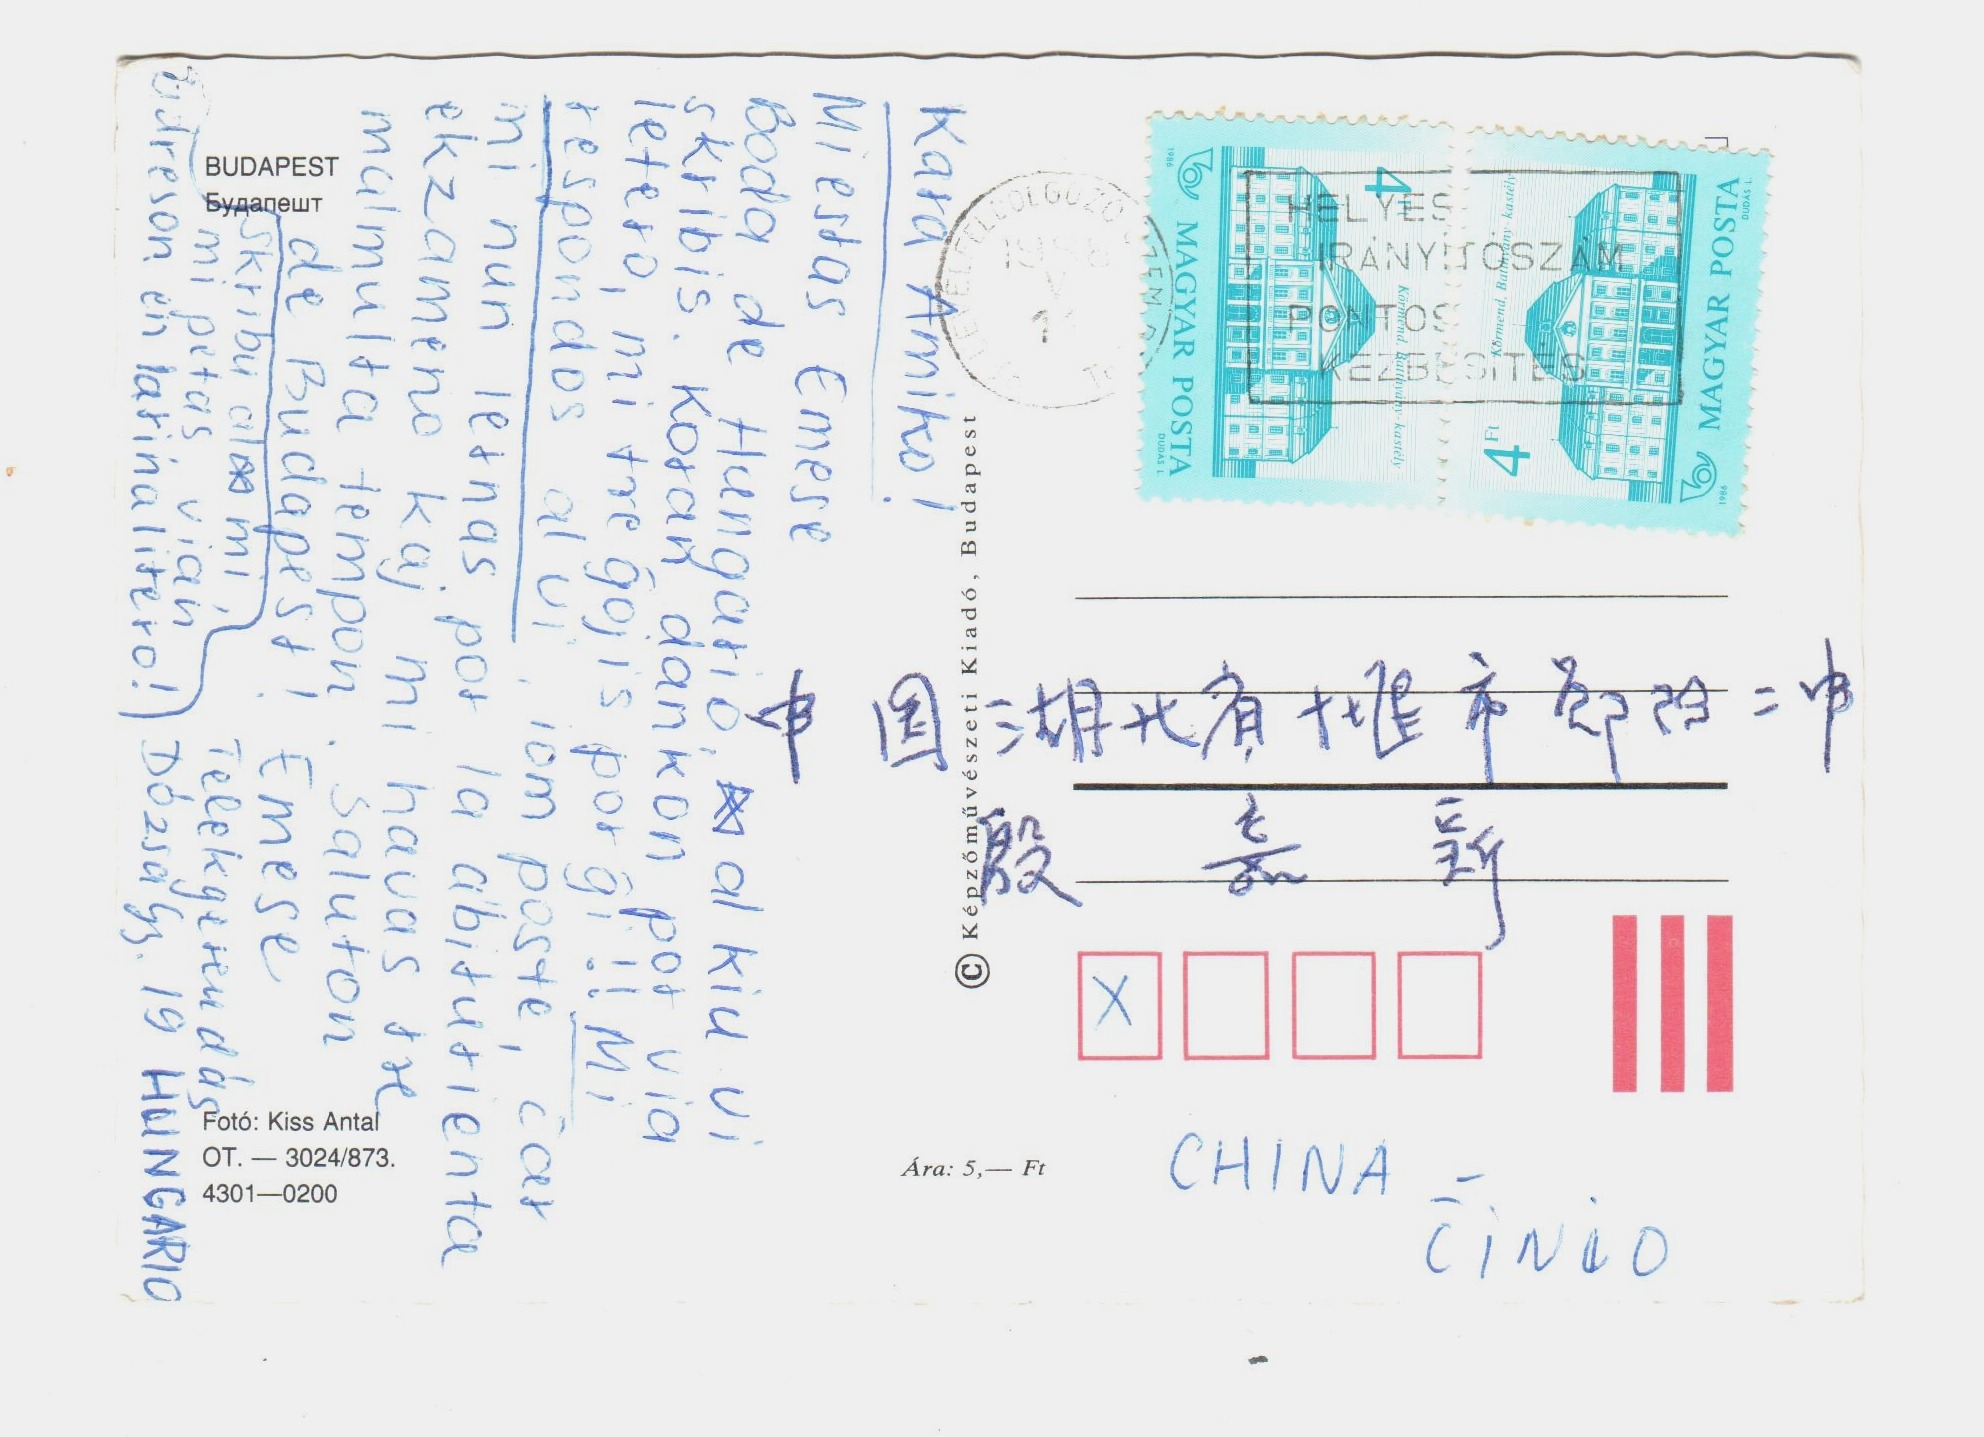 Kara Amiko!
Mi estas Emese
Boda de Hungario, al kiu vi
skribis. Koran dankon por via
letero, mi tre ĝojis por ĝi!!! Mi
respondos al vi iom poste, ĉar
mi nun lernas por la abiturienta
ekzameno kaj mi havas tre
malmulta tempon. Saluton
de Budapest! Emese
Skribu al mi,
mi petas vian
adreson en latinalitero!
Telekgerendás
Dózsa Gy. 19 HUNGARIO
BUDAPEST
Будапешт
Fotó: Kiss Antal
OT. — 3024/873.
4301—0200
© Képzőművészeti Kiadó, Budapest
Ára: 5,— Ft
1986
MAGYAR POSTA
4
Körmend, Batthyány-kastély
DUDÁS L.
MAGYAR POSTA
4 Ft
Körmend, Batthyány kastély
DUDÁS L.
1986
HELYES
IRÁNYÍTÓSZÁM
PONTOS
KÉZBESÍTÉS
中国=湖北省十堰市郧阳=中
殷嘉新
X
CHINA -
ĈINIO